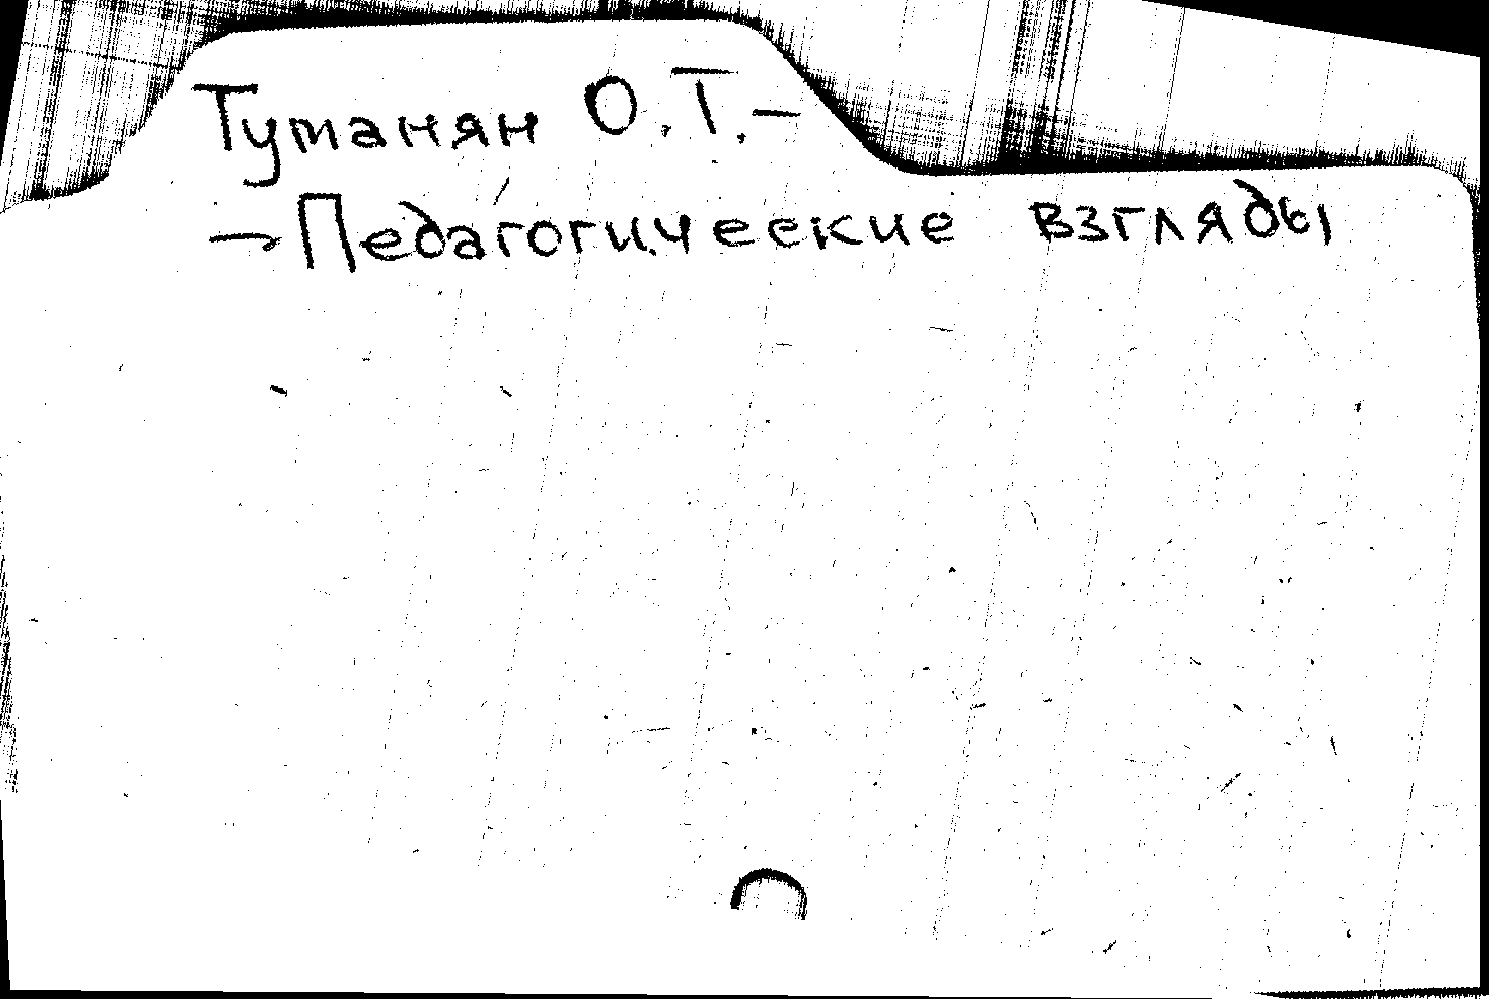 Туманян О.Т.—
—Педагогические взгляды